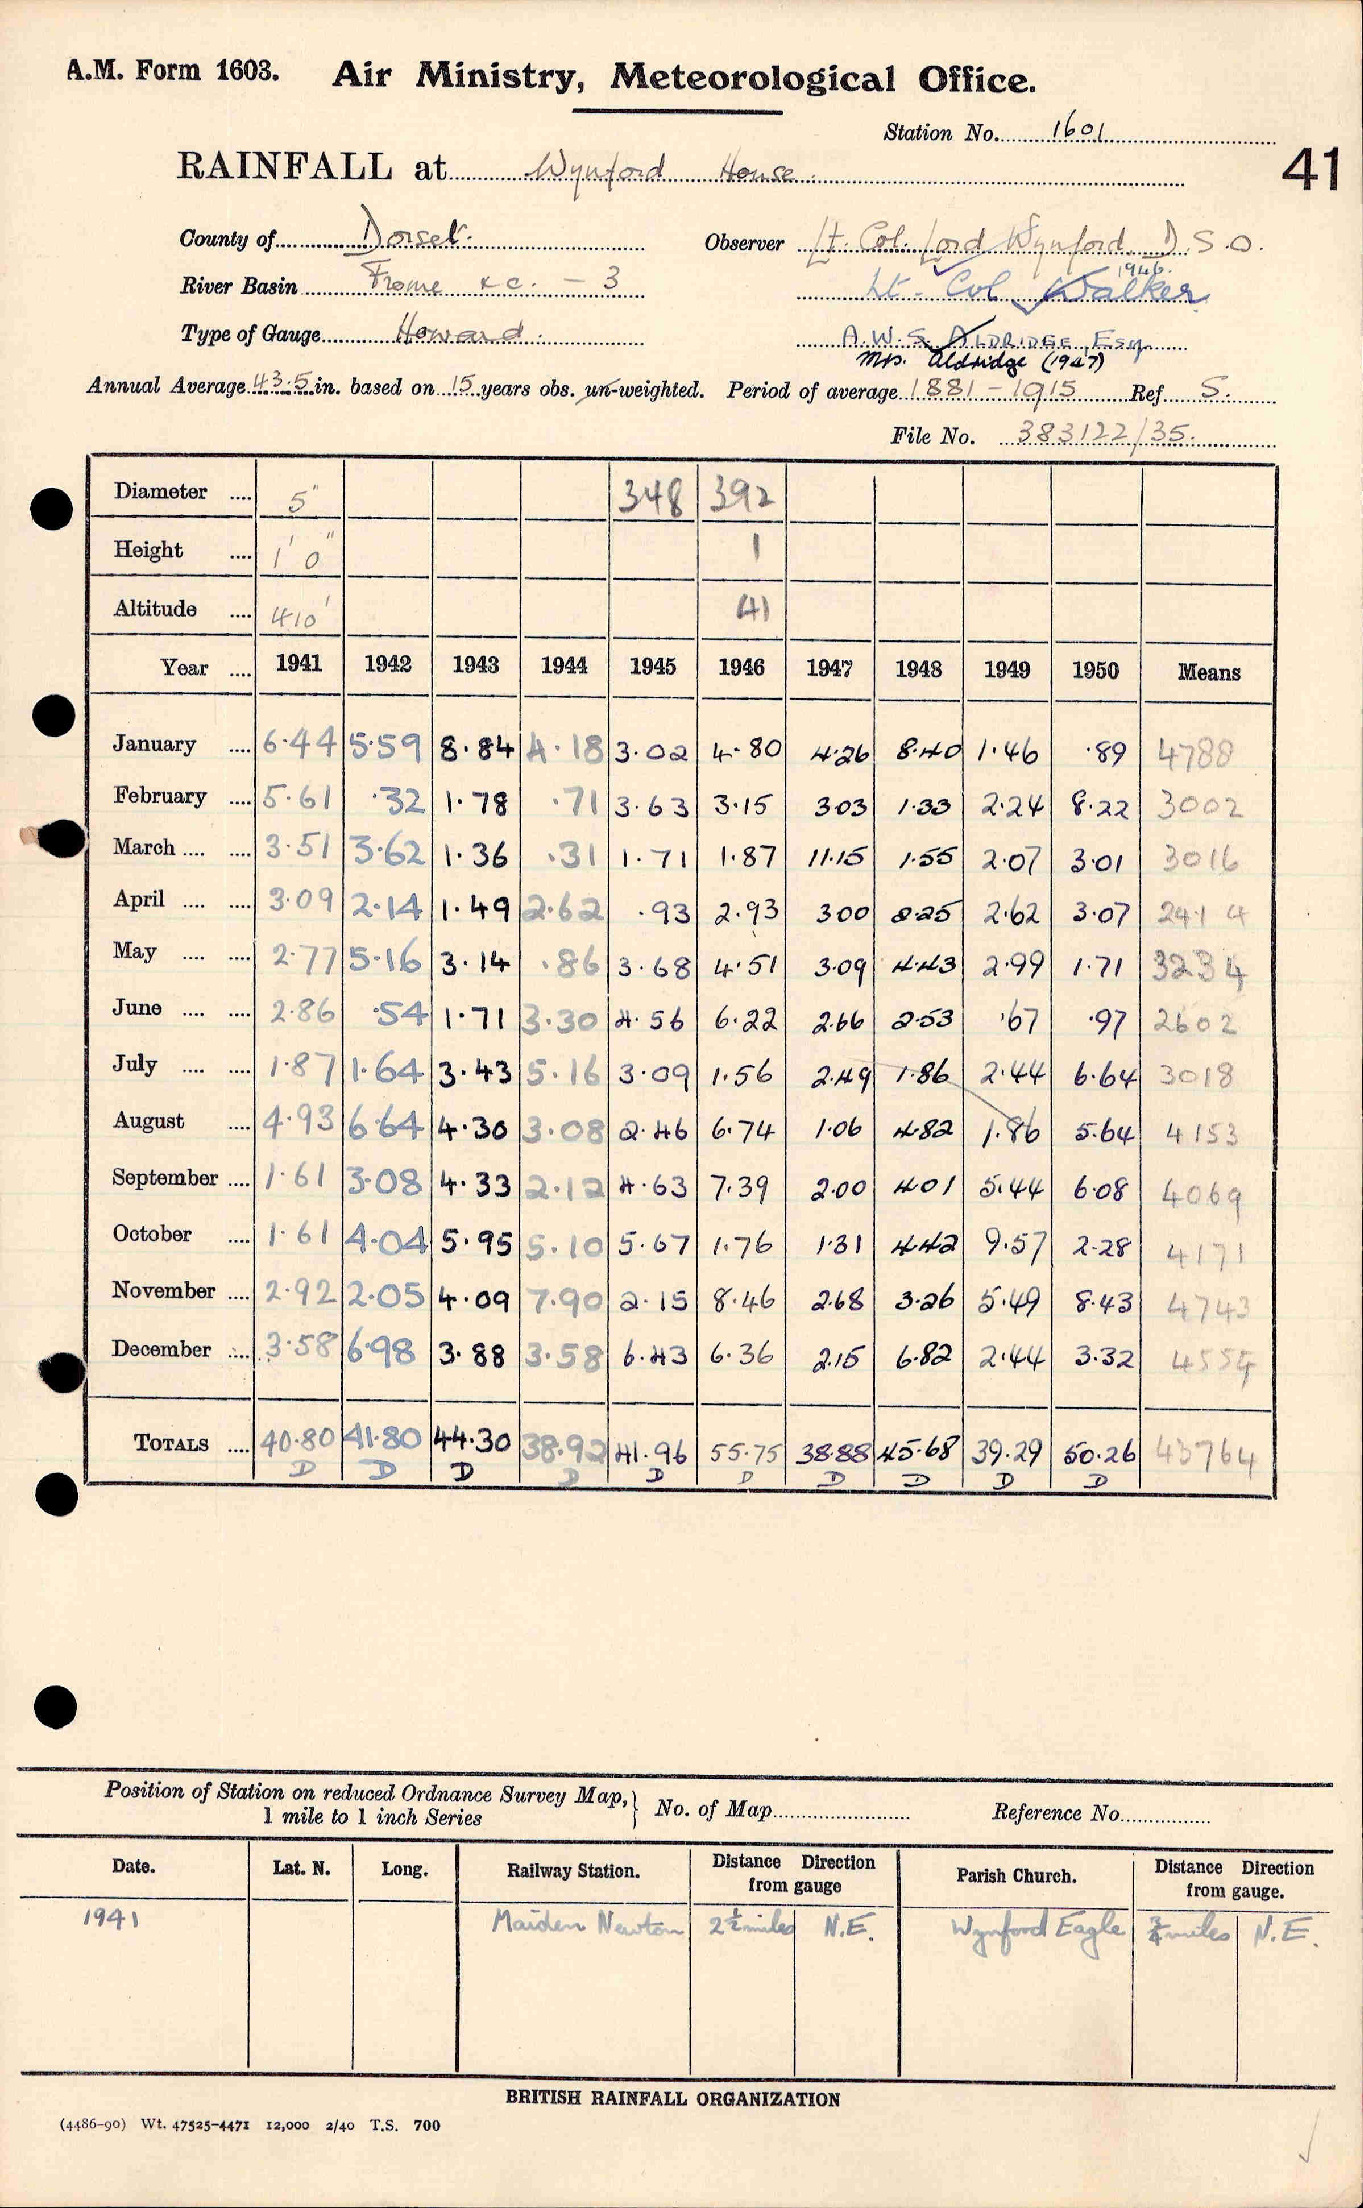 A.M. Form 1603. Air Ministry, Meteorological Office.
Station No. 1601
41
RAINFALL at Wynford House.
County of Dorset. Observer Lt. Col. Lord Wynford, D.S.O.
River Basin Frome &c. - 3 Lt- Col Walker 1946.
Type of Gauge Howard. A.W.S. ALDRIDGE, Esq.
Mrs. Aldridge (1947)
Annual Average 43.5 in. based on 15 years obs. un-weighted. Period of average 1881-1915 Ref S.
File No. 383122/35.
Diameter .... 5" 348 392
Height .... 1' 0" 1
Altitude .... 410' 41
Year .... 1941 1942 1943 1944 1945 1946 1947 1948 1949 1950 Means
January .... 6.44 5.59 8.84 4.18 3.02 4.80 4.26 8.40 1.46 .89 4788
February .... 5.61 .32 1.78 .71 3.63 3.15 3.03 1.33 2.24 8.22 3002
March .... .... 3.51 3.62 1.36 .31 1.71 1.87 11.15 1.55 2.07 3.01 3016
April .... .... 3.09 2.14 1.49 2.62 .93 2.93 3.00 2.25 2.62 3.07 2414
May .... .... 2.77 5.16 3.14 .86 3.68 4.51 3.09 4.43 2.99 1.71 3234
June .... .... 2.86 .54 1.71 3.30 4.56 6.22 2.66 2.53 .67 .97 2602
July .... .... 1.87 1.64 3.43 5.16 3.09 1.56 2.49 1.86 2.44 6.64 3018
August .... 4.93 6.64 4.30 3.08 2.46 6.74 1.06 4.82 1.86 5.64 4153
September .... 1.61 3.08 4.33 2.12 4.63 7.39 2.00 4.01 5.44 6.08 4069
October .... 1.61 4.04 5.95 5.10 5.67 1.76 1.31 4.42 9.57 2.28 4171
November .... 2.92 2.05 4.09 7.90 2.15 8.46 2.68 3.26 5.49 8.43 4743
December .... 3.58 6.98 3.88 3.58 6.43 6.36 2.15 6.82 2.44 3.32 4554
TOTALS .... 40.80 41.80 44.30 38.92 41.96 55.75 38.88 45.68 39.29 50.26 43764
D D D D D D D D D D
Position of Station on reduced Ordnance Survey Map,
1 mile to 1 inch Series } No. of Map Reference No.
Date. Lat. N. Long. Railway Station. Distance Direction from gauge Parish Church. Distance Direction from gauge.
1941 Maiden Newton 2½ miles N.E. Wynford Eagle ¾ miles N.E.
BRITISH RAINFALL ORGANIZATION
(4486-90) Wt. 47525-4471 12,000 2/40 T.S. 700